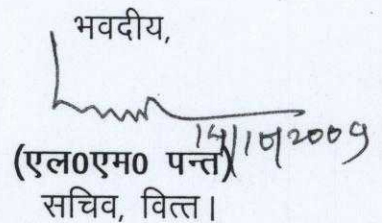 भवदीय,
14/10/2009
(एल0एम0 पन्त)
सचिव, वित्त।